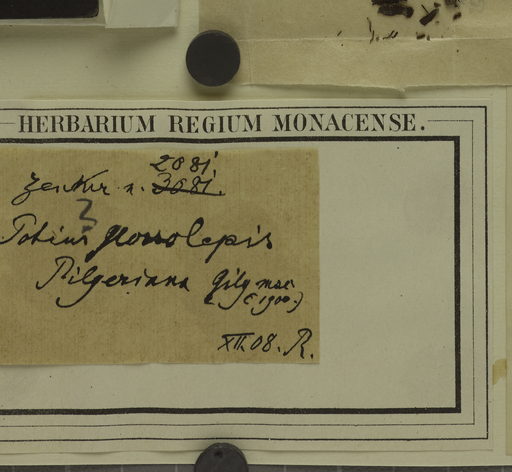 HERBARIUM REGIUM MONACENSE.
2081
Zenker n. 3081.
?
Potius Glossolepis
Pilgeriana Gilg msc
(c. 1900.)
XII.08. R.